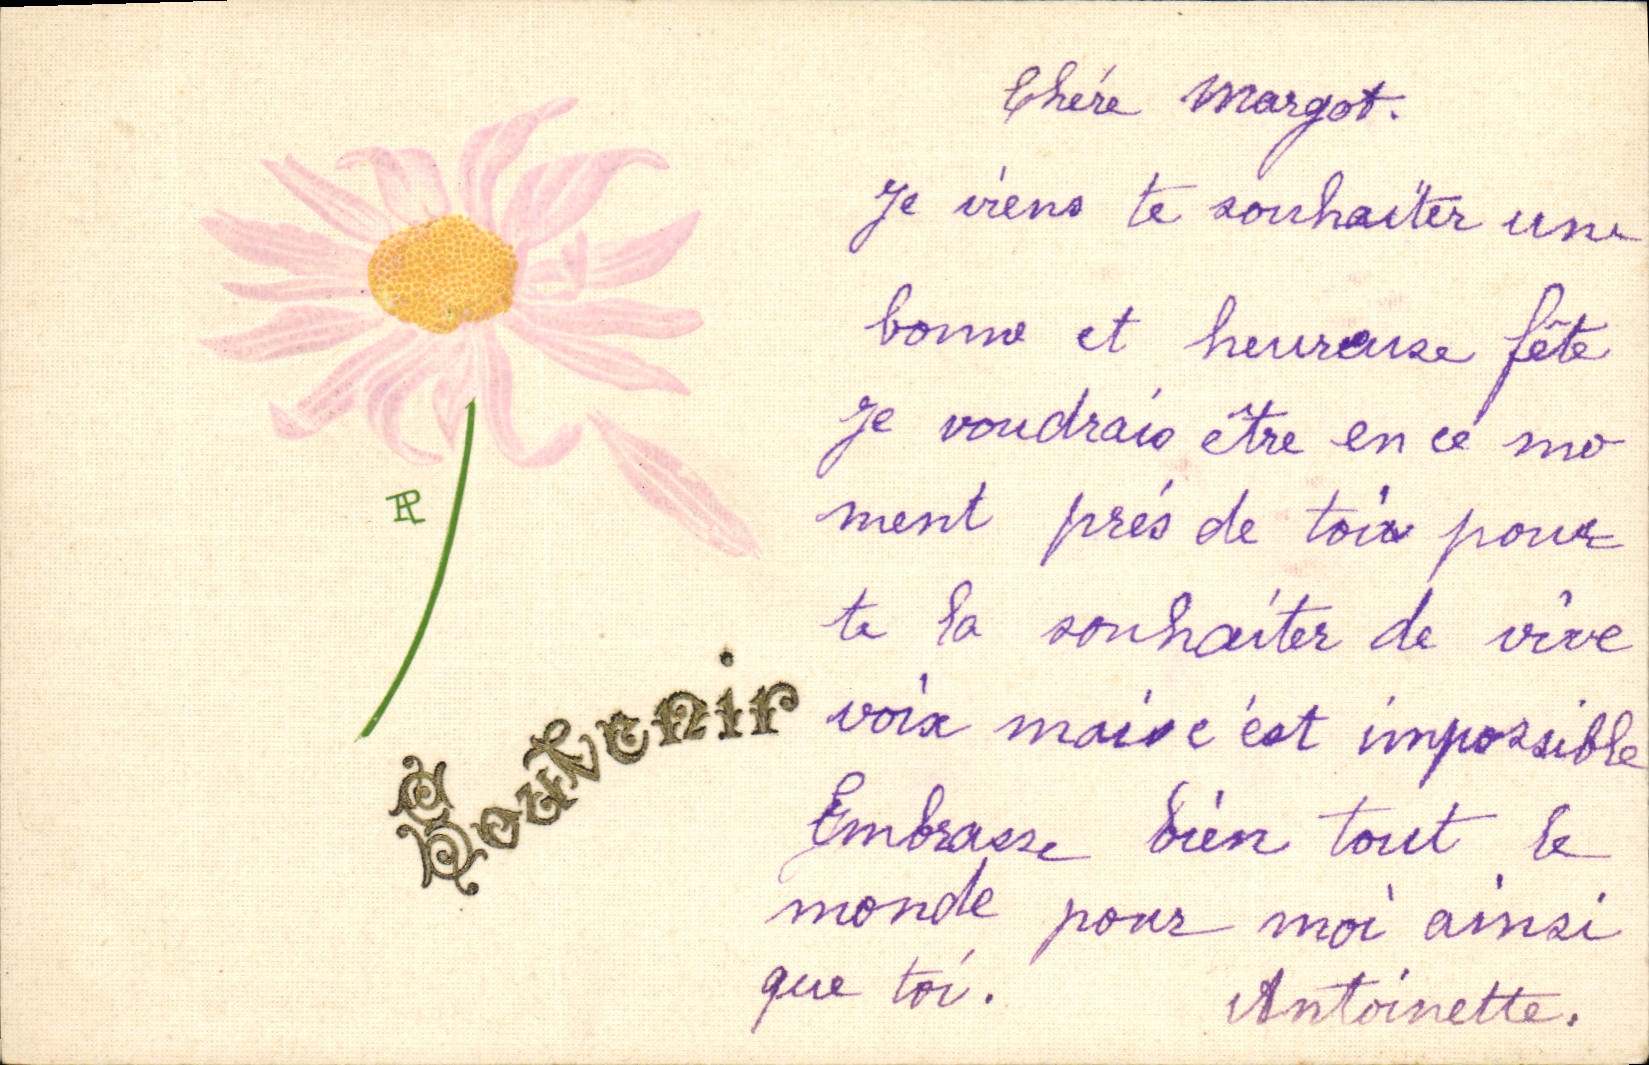 Chére Margot.
Je viens te souhaiter une
bonne et heureuse fête
Je voudrais être en ce mo
ment prés de toix pour
te la souhaiter de vive
voix mais c'est impossible
Embrasse bien tout le
monde pour moi ainsi
que toi. Antoinette.
AP
Souvenir